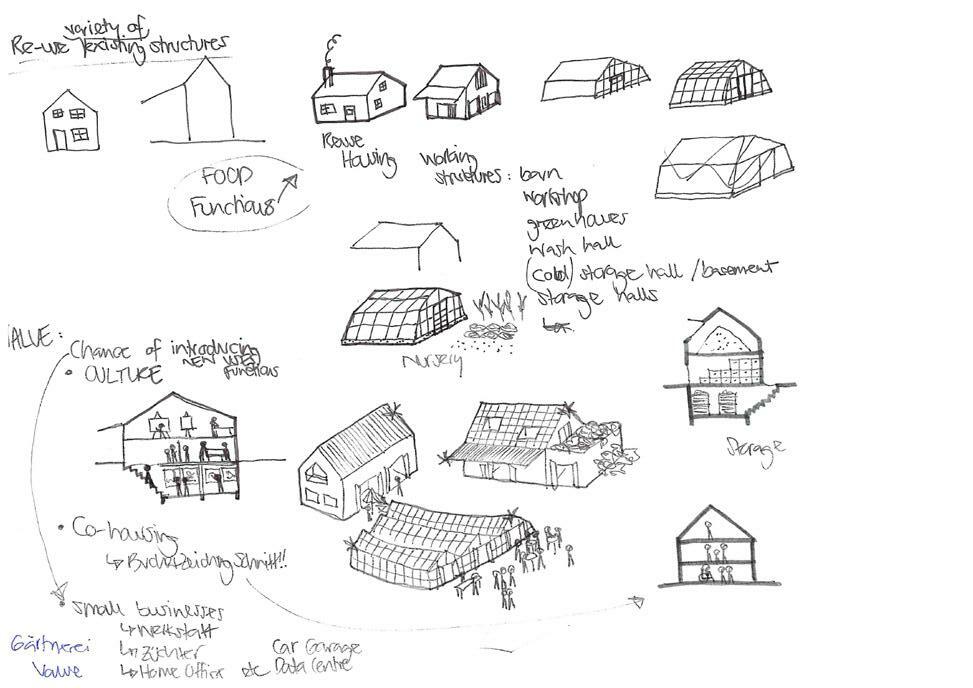 variety of
Re-use existing structures
FOOD
Functions
Reuse
Housing
working
structures: barn
workshop
greenhouses
wash hall
(cold) storage hall / basement
storage halls
Nursery
VALUE:
Chance of introducing
NEW
functions
• CULTURE
Storage
• Co-housing
↳ Schnitt!!
• small businesses
↳ Werkstatt
↳ Züchter
↳ Home Office etc
Car Garage
Data Centre
Gärtnerei
Value